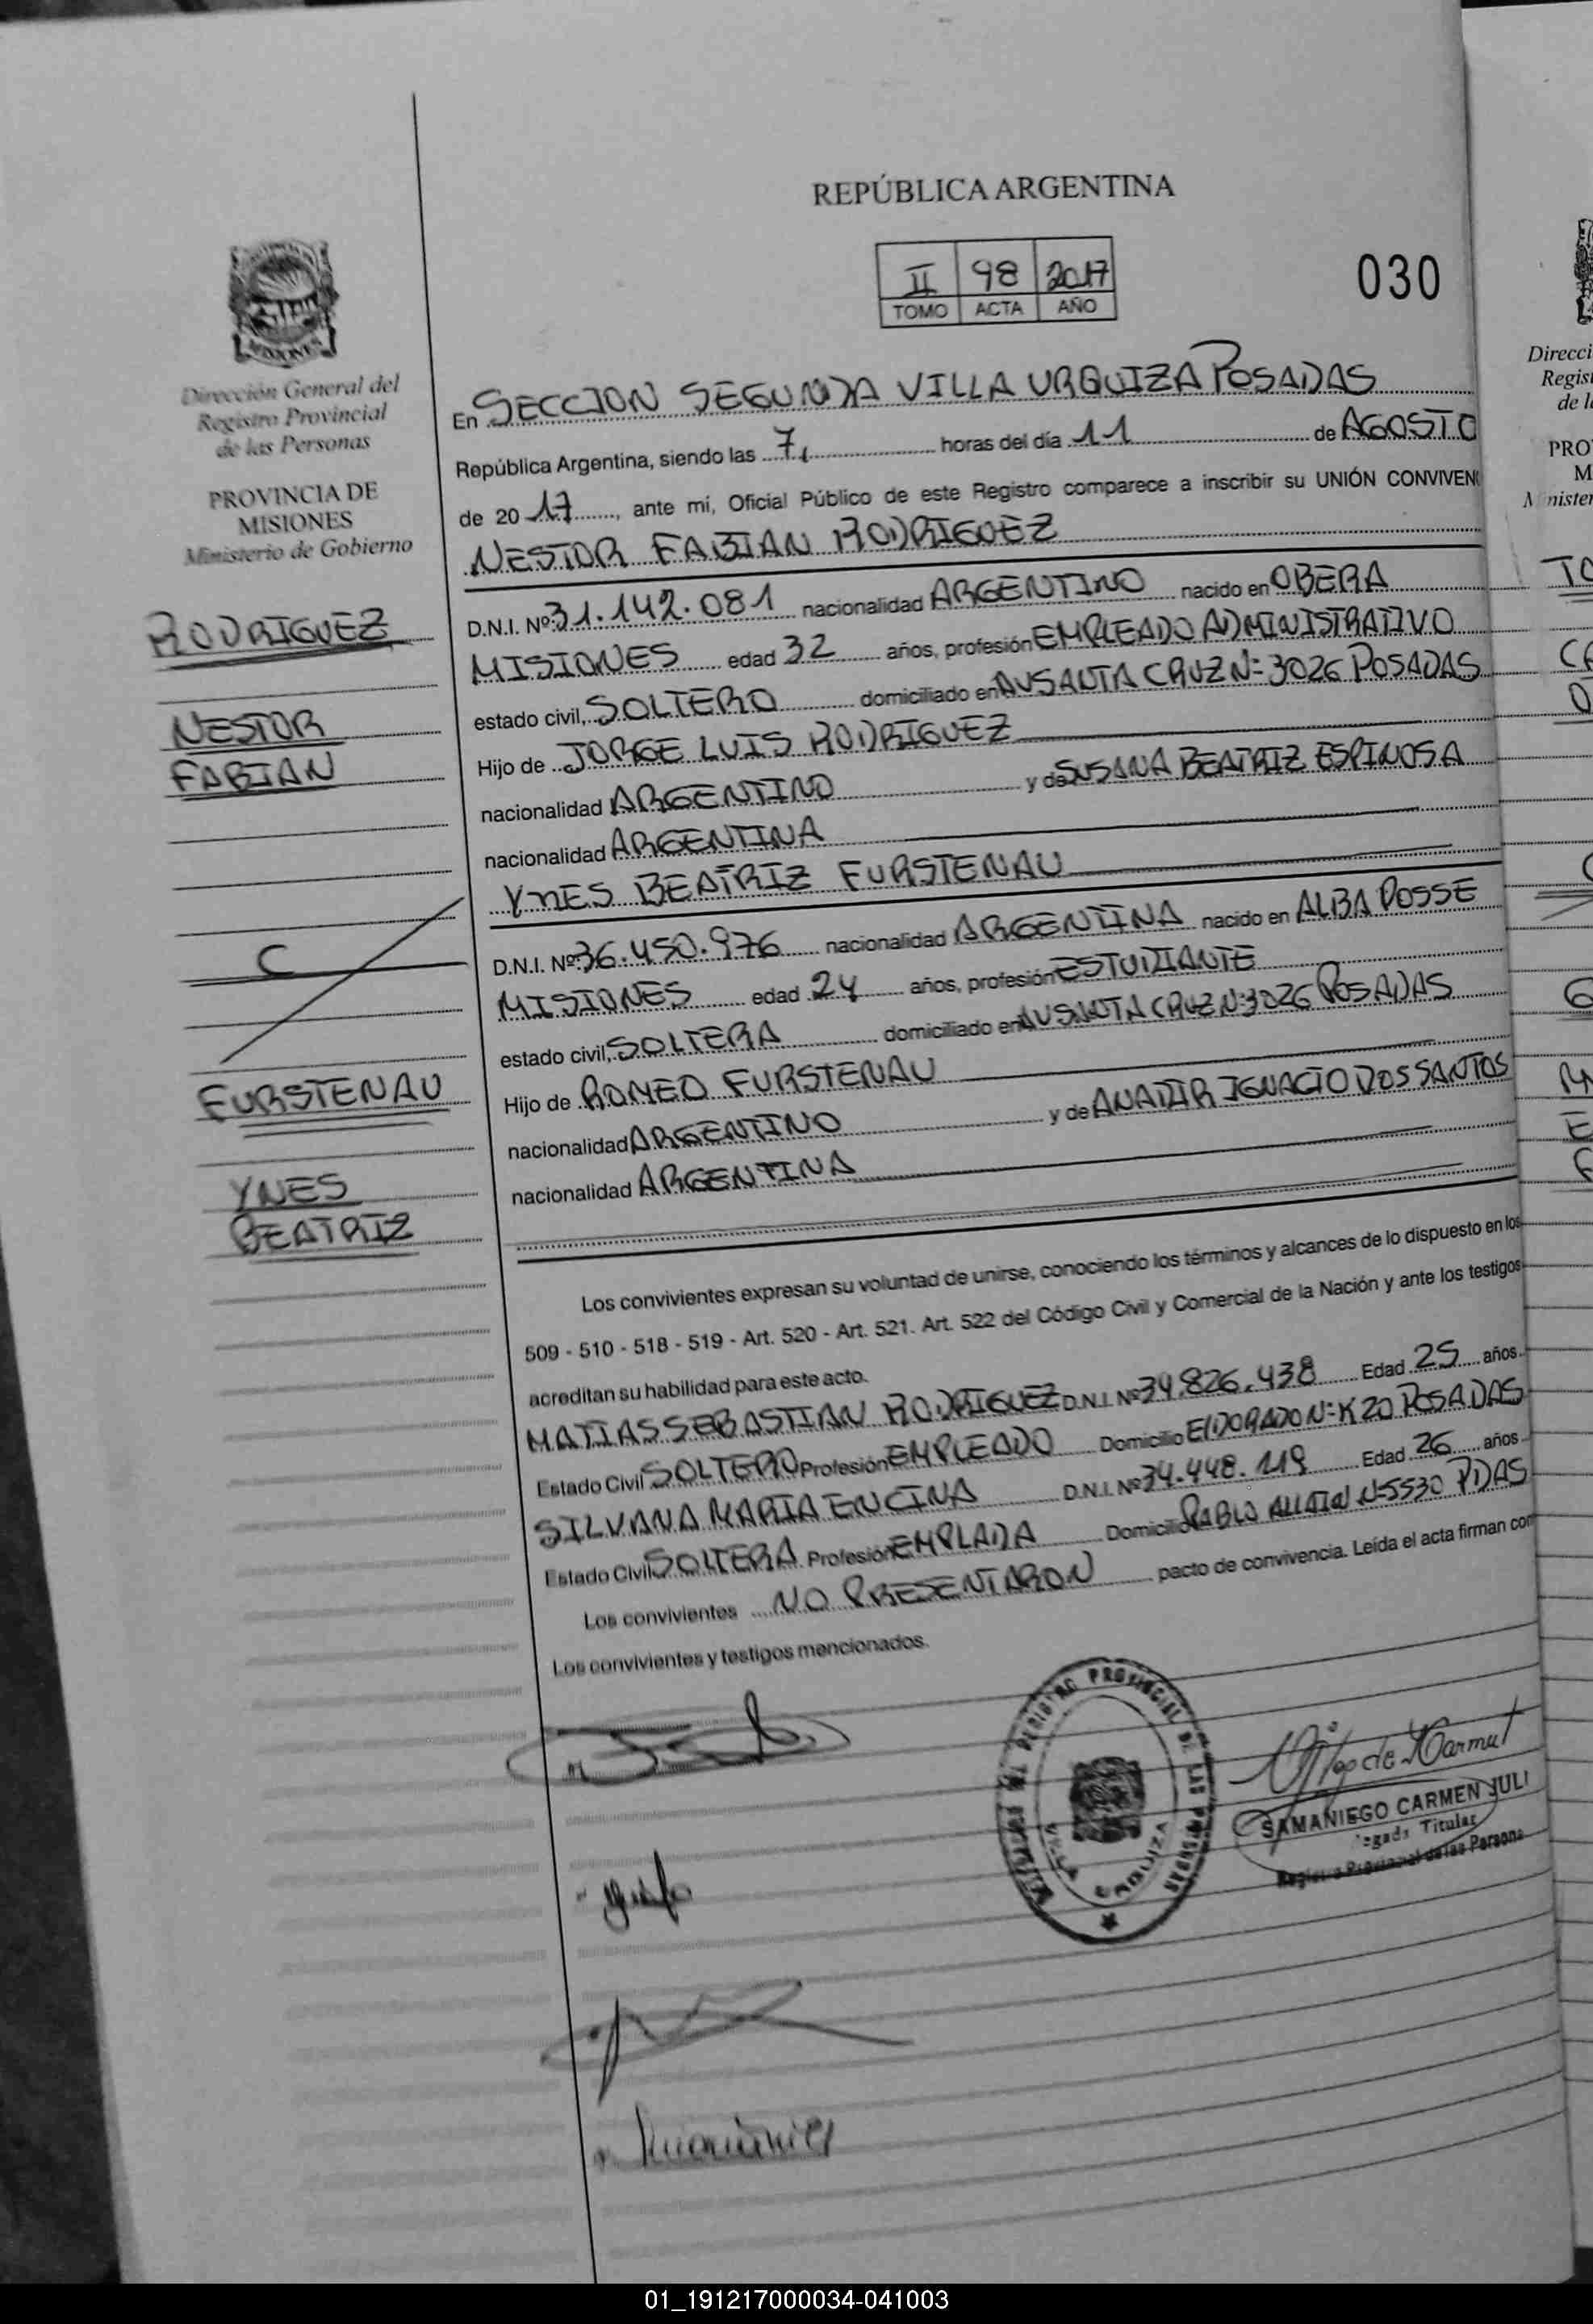 REPÚBLICA ARGENTINA
II 98 2017
TOMO ACTA AÑO
030
MISIONES
Dirección General del
Registro Provincial
de las Personas
PROVINCIA DE
MISIONES
Ministerio de Gobierno
RODRIGUEZ
NESTOR
FABIAN
C
FURSTENAU
YNES
BEATRIZ
En SECCION SEGUNDA VILLA URQUIZA POSADAS
República Argentina, siendo las 7, horas del día 11 de AGOSTO
de 20 17, ante mí, Oficial Público de este Registro comparece a inscribir su UNIÓN CONVIVENC
NESTOR FABIAN RODRIGUEZ
D.N.I. Nº 31.142.081 nacionalidad ARGENTINO nacido en OBERA
MISIONES edad 32 años, profesión EMPLEADO ADMINISTRATIVO
estado civil, SOLTERO domiciliado en AV SANTA CRUZ N= 3026 POSADAS
Hijo de JORGE LUIS RODRIGUEZ
nacionalidad ARGENTINO y de SUSANA BEATRIZ ESPINOSA
nacionalidad ARGENTINA
YNES BEATRIZ FURSTENAU
D.N.I. Nº 36.450.976 nacionalidad ARGENTINA nacido en ALBA POSSE
MISIONES edad 24 años, profesión ESTUDIANTE
estado civil, SOLTERA domiciliado en AV SANTA CRUZ N=3026 POSADAS
Hijo de ROMEO FURSTENAU
nacionalidad ARGENTINO y de ANADIR IGNACIO DOS SANTOS
nacionalidad ARGENTINA
Los convivientes expresan su voluntad de unirse, conociendo los términos y alcances de lo dispuesto en los
509 - 510 - 518 - 519 - Art. 520 - Art. 521. Art. 522 del Código Civil y Comercial de la Nación y ante los testigos
acreditan su habilidad para este acto.
MATIAS SEBASTIAN RODRIGUEZ D.N.I. Nº 34.826.438 Edad 25 años.
Estado Civil SOLTERO Profesión EMPLEADO Domicilio ElDORADO N=K 20 POSADAS
SILVANA MARIA ENCINA D.N.I. Nº 34.448.119 Edad 26 años
Estado Civil SOLTERA Profesión EMPLADA Domicilio PABLO ALLAIN N-5530 PDAS
Los convivientes NO PRESENTARON pacto de convivencia. Leída el acta firman con
Los convivientes y testigos mencionados.
REGISTRO PROVINCIAL DE LAS PERSONAS
VILLA URQUIZA
SAMANIEGO CARMEN JULI
Titular
Registro Provincial de las Persona
Direcci
Regist
de l
PRO
M
Minister
01_191217000034-041003